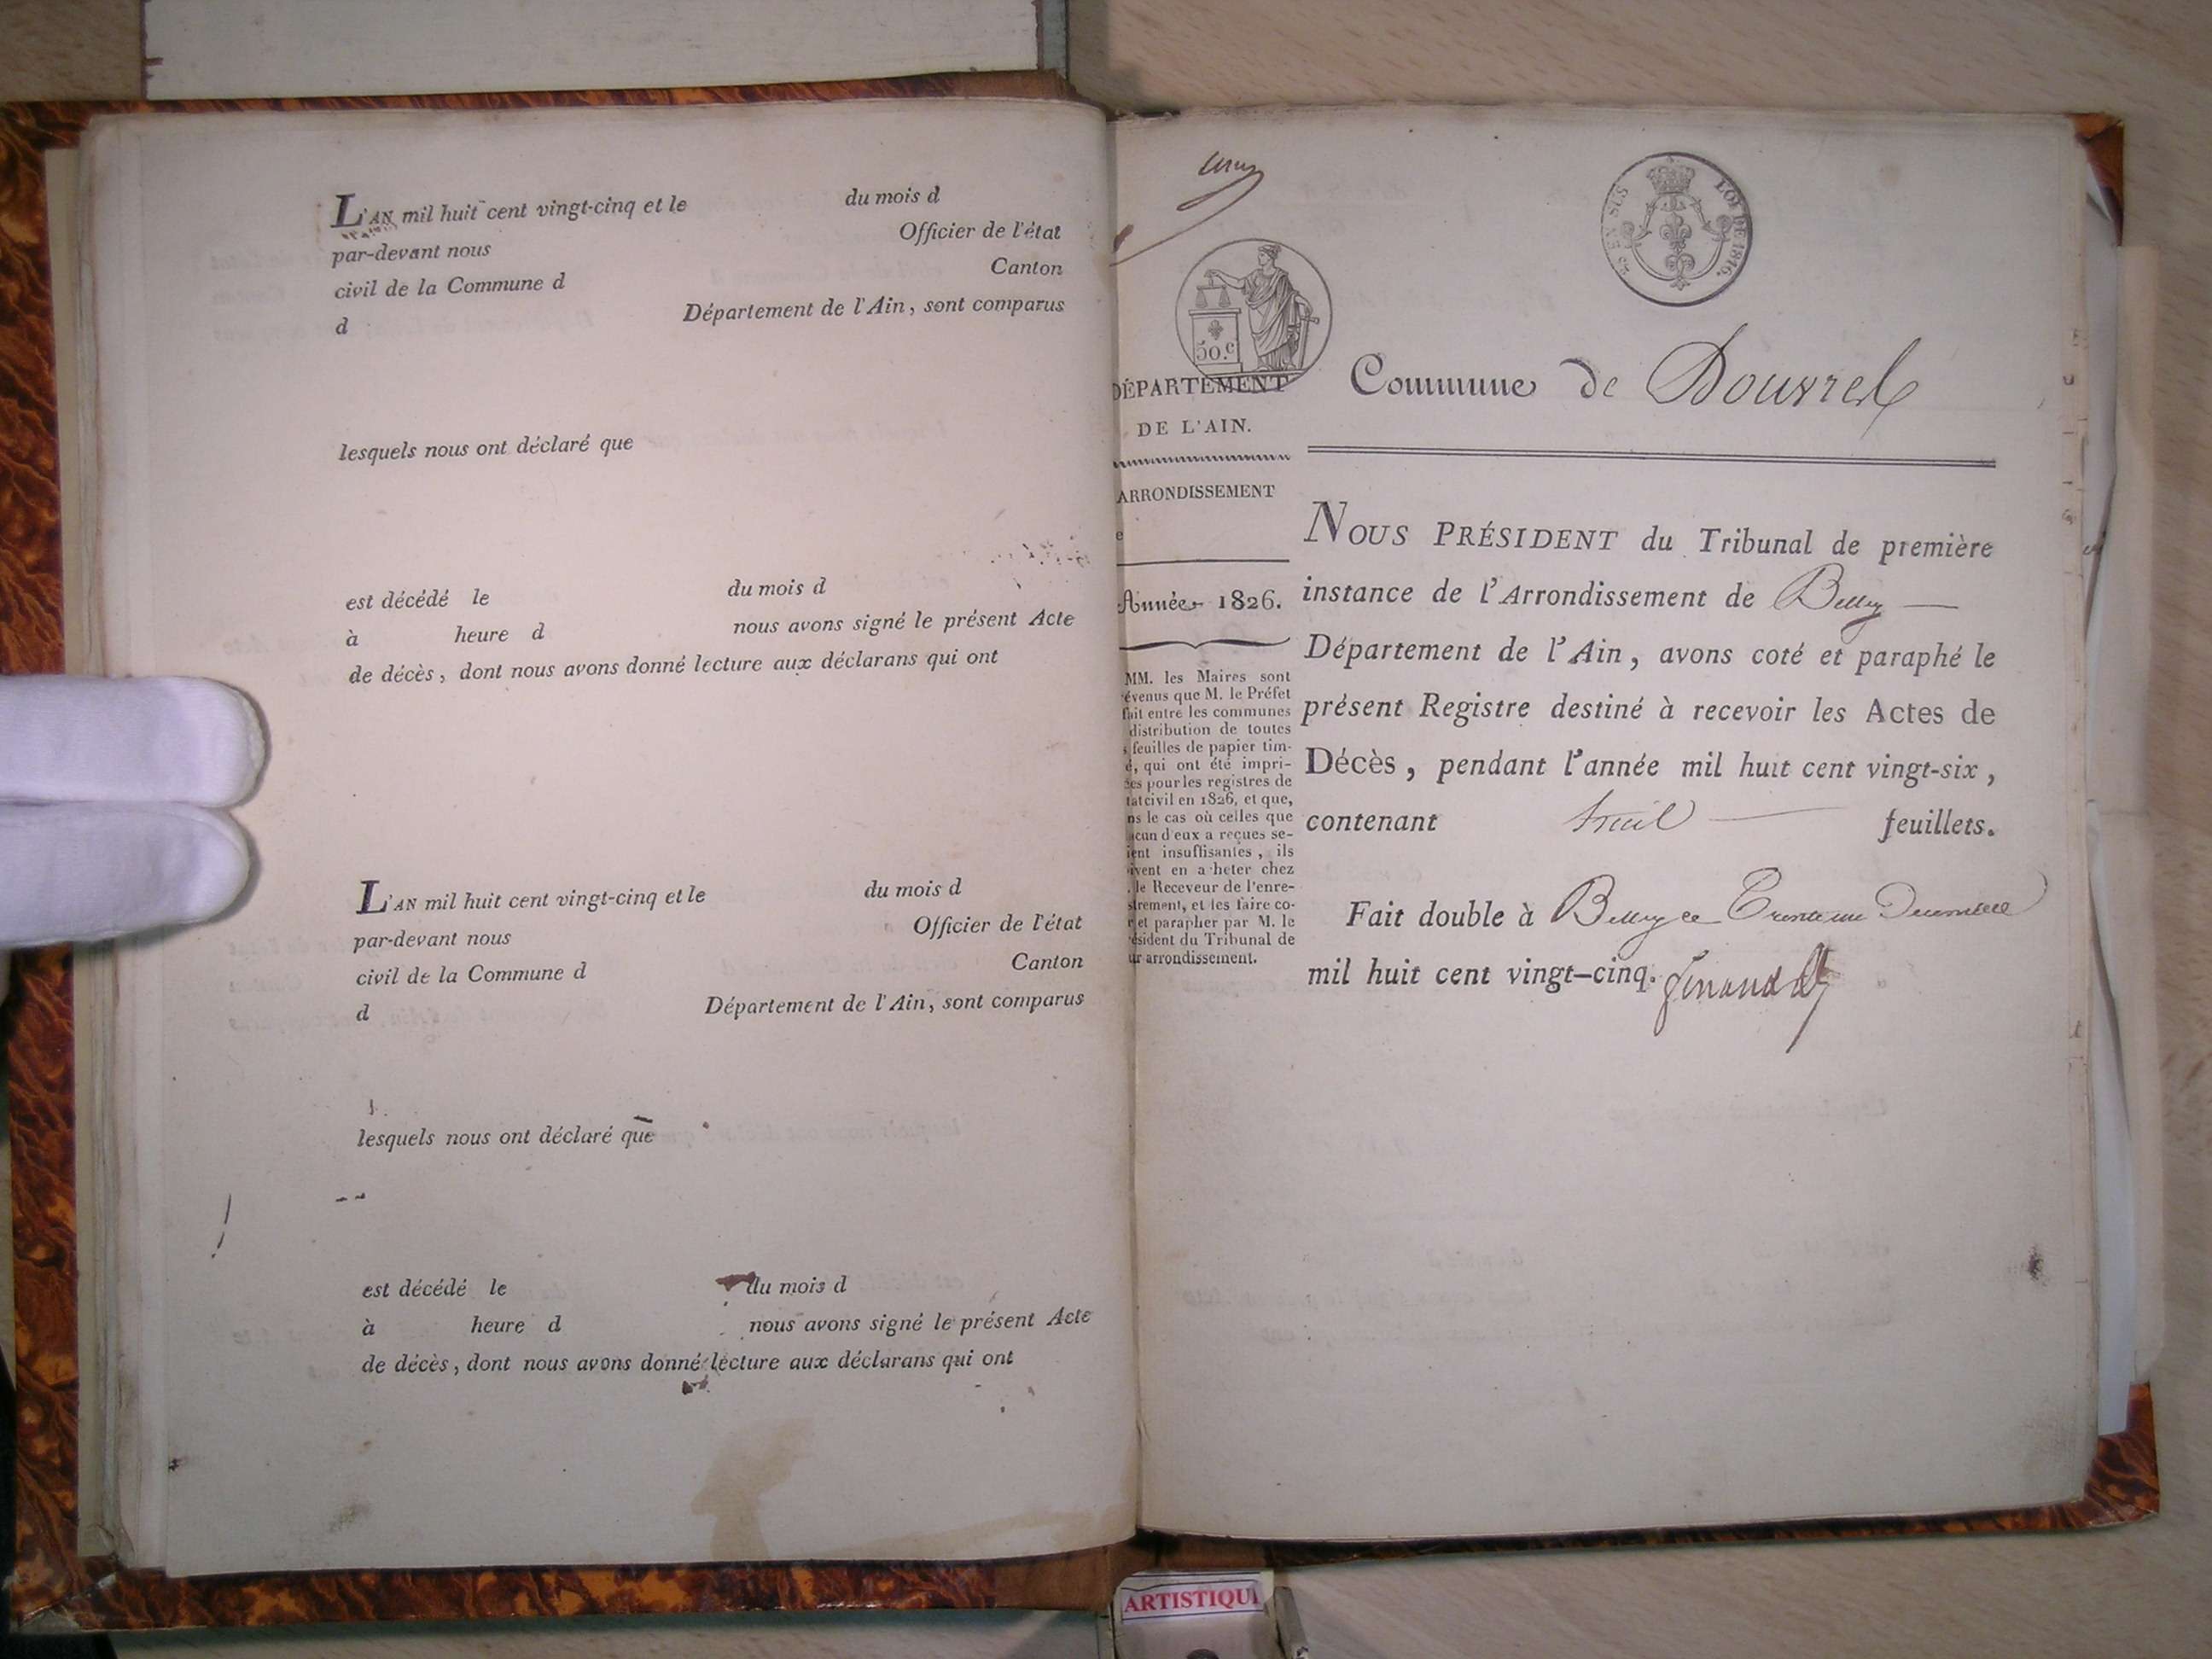 L'AN mil huit cent vingt-cinq et le du mois d
par-devant nous Officier de l'état
civil de la Commune d Canton
d Département de l'Ain, sont comparus
lesquels nous ont déclaré que
est décédé le du mois d
à heure d nous avons signé le présent Acte
de décès, dont nous avons donné lecture aux déclarans qui ont
L'AN mil huit cent vingt-cinq et le du mois d
par-devant nous Officier de l'état
civil de la Commune d Canton
d Département de l'Ain, sont comparus
lesquels nous ont déclaré que
est décédé le du mois d
à heure d nous avons signé le présent Acte
de décès, dont nous avons donné lecture aux déclarans qui ont
EN SUS
LOI DE 1816.
50.c
DÉPARTEMENT
DE L'AIN.
ARRONDISSEMENT
e
Année 1826.
MM. les Maires sont
évenus que M. le Préfet
fait entre les communes
distribution de toutes
s feuilles de papier tim-
é, qui ont été impri-
ées pour les registres de
tat civil en 1826, et que,
ns le cas où celles que
acun d'eux a reçues se-
ient insuffisantes, ils
ivent en a heter chez
. le Receveur de l'enre-
strement, et les faire co-
r et parapher par M. le
ésident du Tribunal de
ur arrondissement.
Commune de Douvres
NOUS PRÉSIDENT du Tribunal de première
instance de l'Arrondissement de Belley
Département de l'Ain, avons coté et paraphé le
présent Registre destiné à recevoir les Actes de
Décès, pendant l'année mil huit cent vingt-six,
contenant feuillets.
Fait double à Belley ce Trente un Decembre
mil huit cent vingt-cinq.
ARTISTIQU